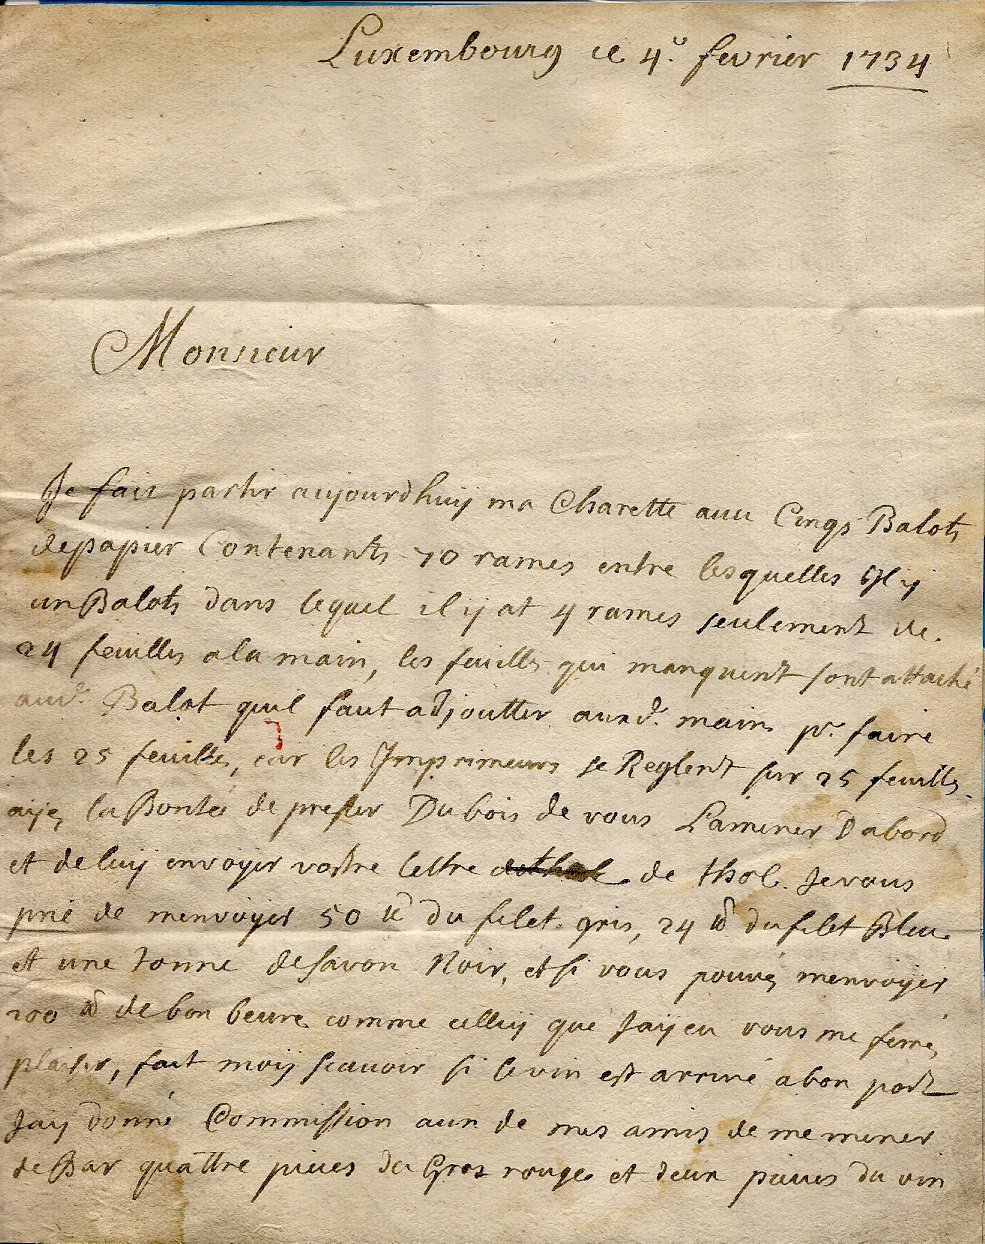 Luxembourg ce 4.e fevrier 1734
Monsieur
Je fait partir aujourdhuy ma Charette avec Cinqs Balots
de papier Contenants 70 rames entre lesquelles Il y
un Balots dans lequel il y at 4 rames seulement de
24 feuilles a la main, les feuilles qui manquent sont attaché
aud.t Balot quil faut adjoutter auxd. mains pr. faire
les 25 feuilles, car les Imprimeurs se Reglent sur 25 feuilles.
ayez la Bonteé de presser Dubois de vous Lamener Dabord
et de luy envoyer vostre lettre de thol. Je vous
prie de menvoyer 50 lb du filet gris, 24 lb du filet Bleu
et une tonne de savon Noir, et si vous pouvez menvoyer
200 lb de bon beure comme celluy que Jay eu vous me ferez
plaisir, fait moy scavoir si le vin est arrivé a bon port
Jay donné Commission a un de mes amis de me mener
de Bar quattre pieces du Gros rouge et deux pieces du vin